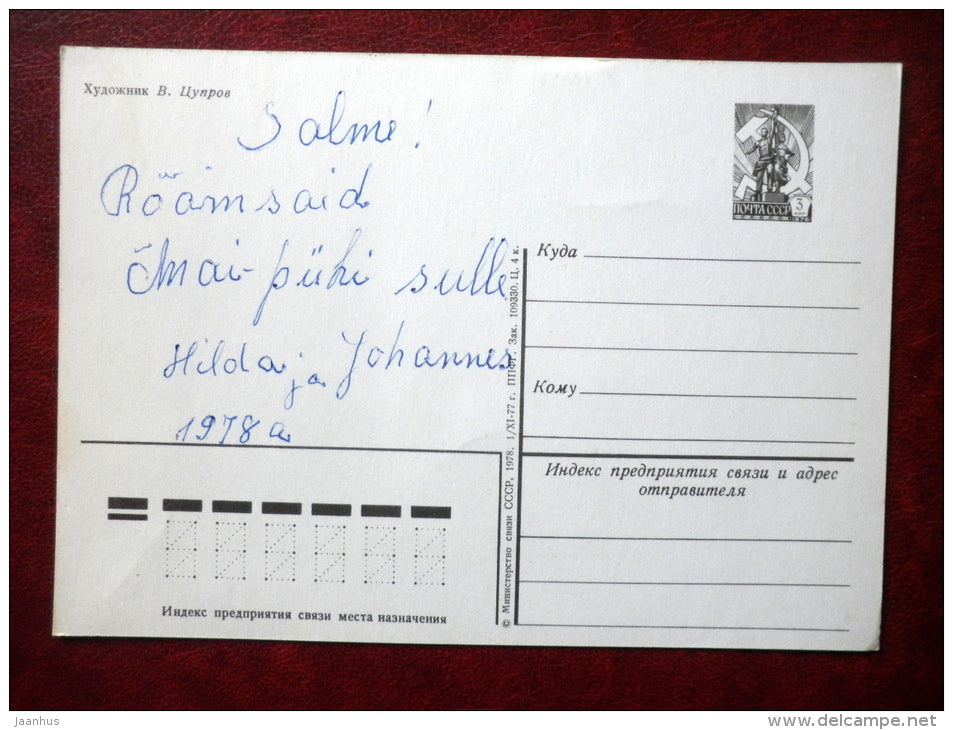 Художник В. Цупров
Salme!
Rõõmsaid
Mai-pühi sulle
Hilda ja Johannes
1978 a
ПОЧТА СССР
3
Куда
Кому
Индекс предприятия связи и адрес
отправителя
© Министерство связи СССР, 1978. 1/XI-77 г. ППФГ. Зак. 109330. Ц. 4 к.
Индекс предприятия связи места назначения
jaanhus
www.delcampe.net